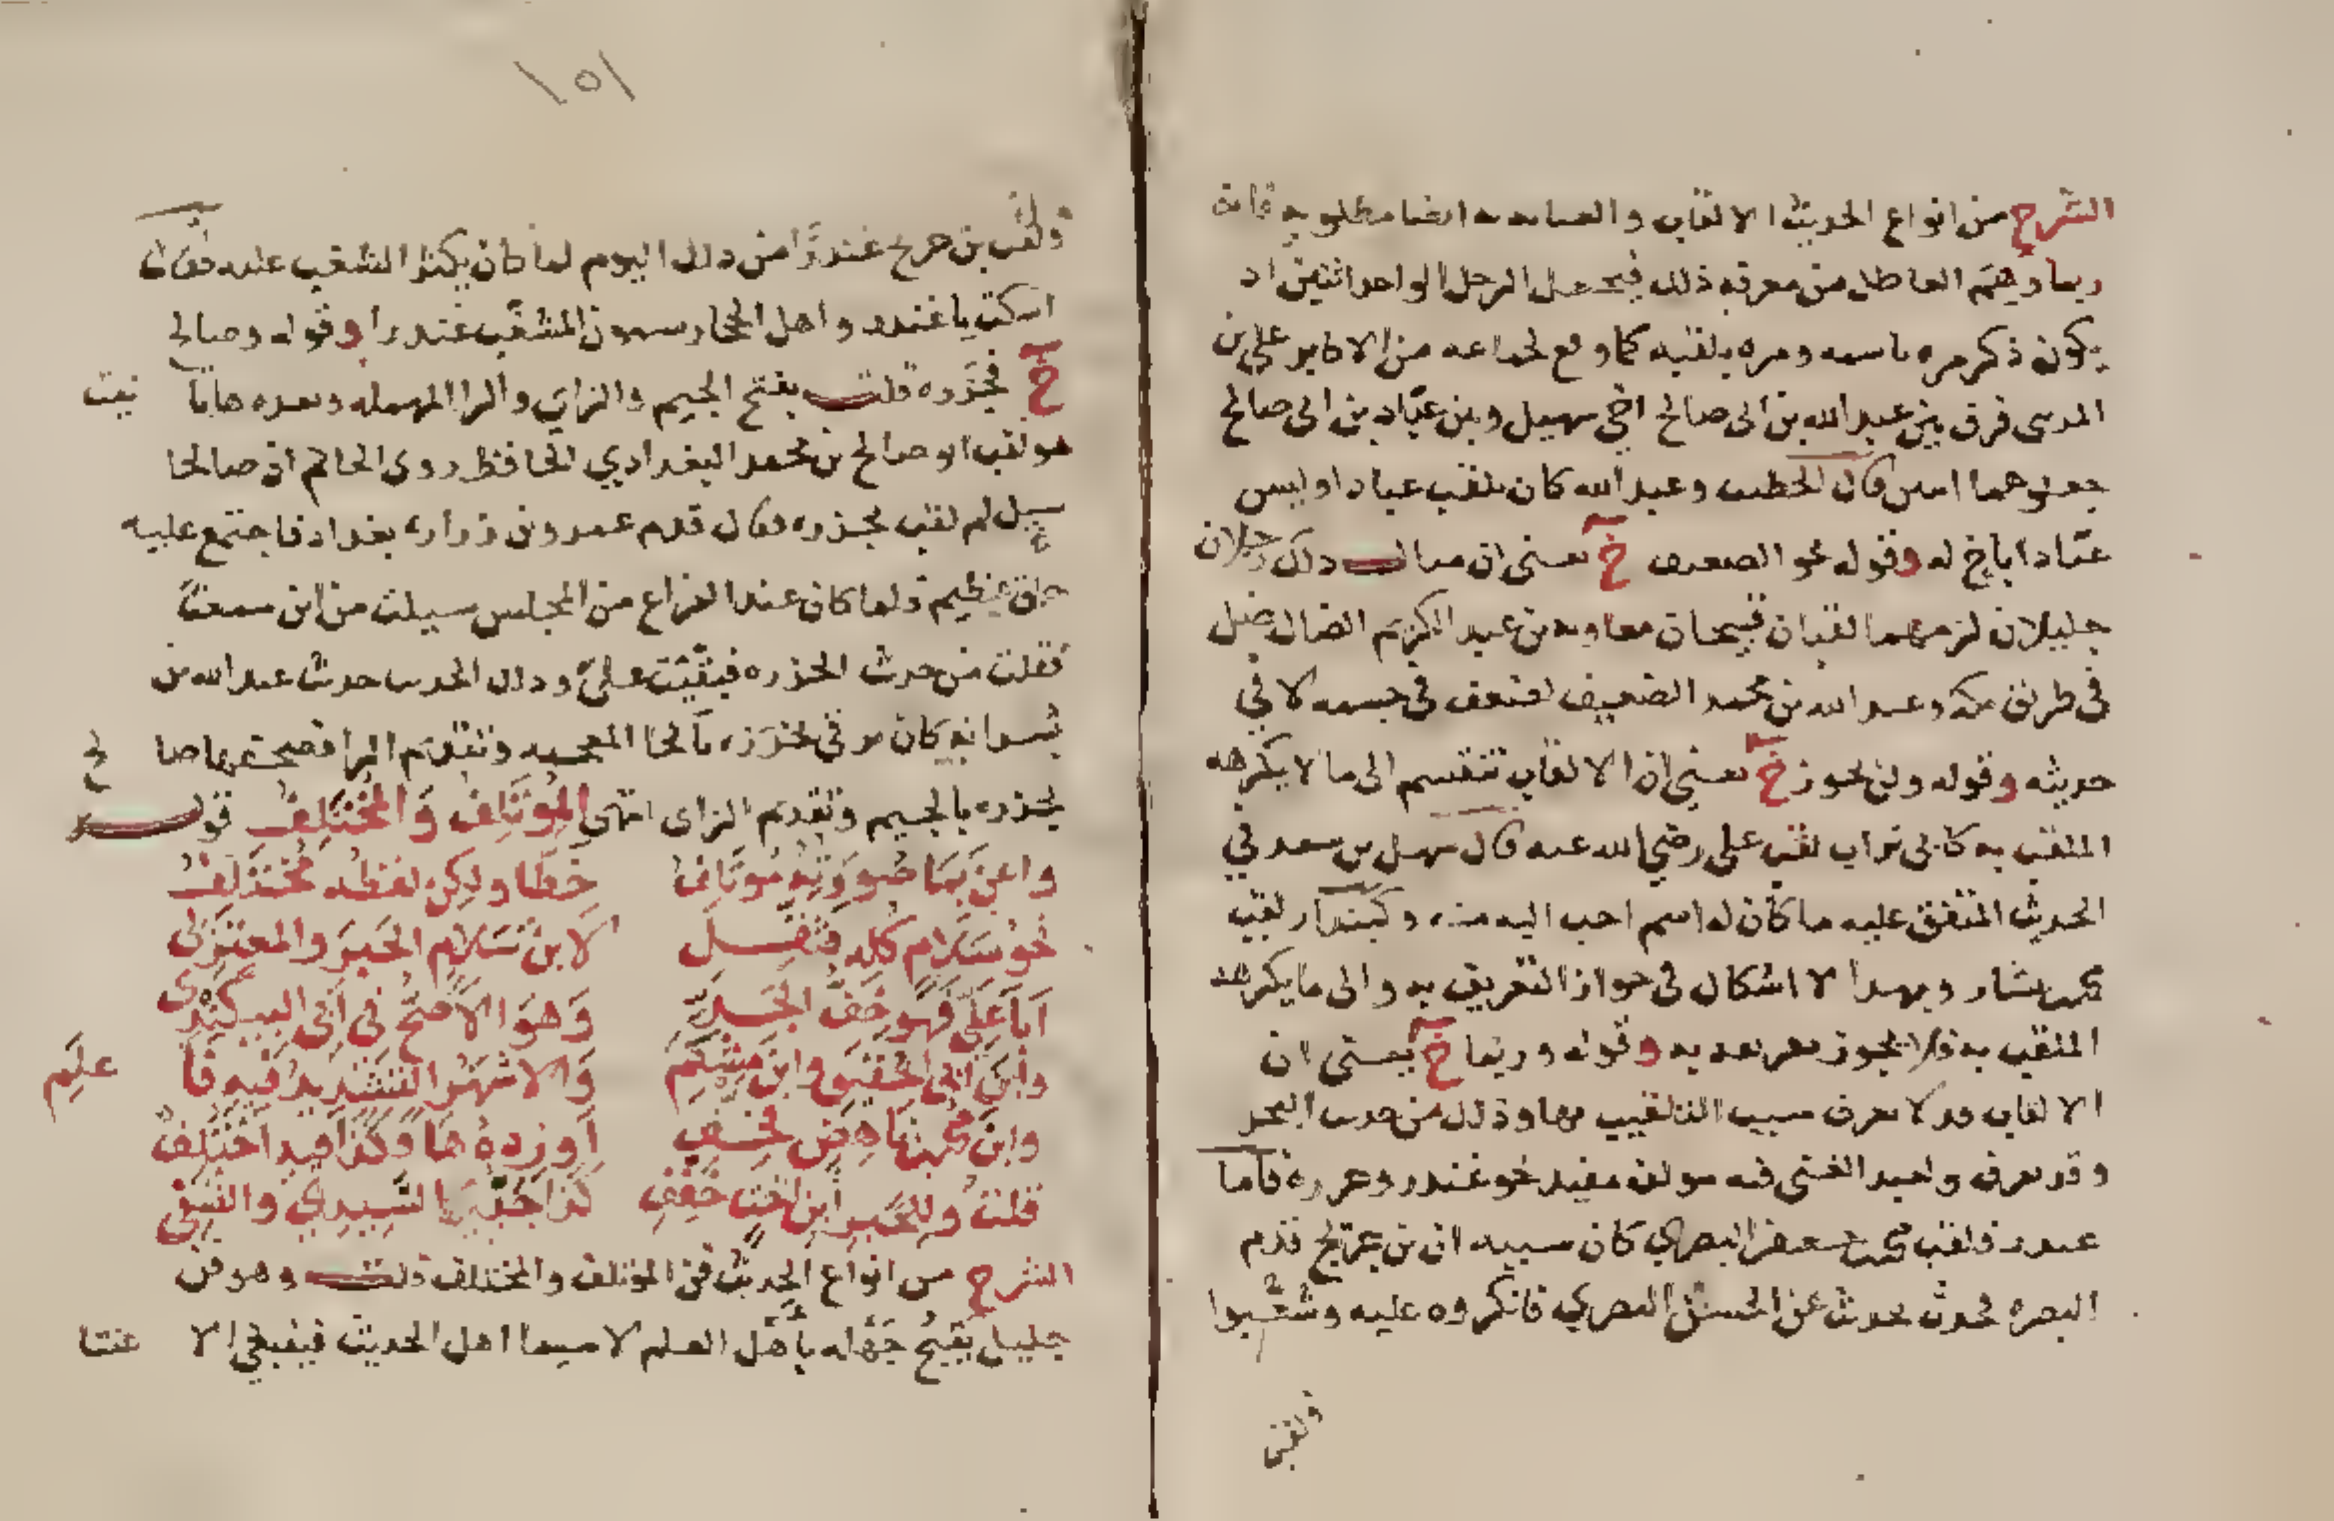 الشرح من انواع الحديث الالقاب والعنايه به ايضا مطلوبه فانه
ربما وهم العاطل من معرفه ذلك فيجعل الرجل الواحد اثنين اذ
يكون ذكر مره باسمه ومره بلقبه كما وقع لجماعه من الاكابر علي بن
المديني فرق بين عبد الله بن ابي صالح اخي سهيل وبين عباد بن ابي صالح
جعلوهما اثنين قال الخطيب وعبد الله كان يلقب عبادا وليس
عبادا باخ له وقوله نحو الضعيف خ يعني ان مما ذلك رجلان
جليلان لزمهما لقبان قبيحان معاويه بن عبد الكريم الضال ضل
في طريق مكه وعبد الله بن محمد الضعيف لضعف في جسمه لا في
حديثه وقوله ولن يجوز خ يعني ان الالقاب تنقسم الى ما لا يكرهه
الملقب به كابي تراب لقب علي رضي الله عنه قال سهل بن سعد في
الحديث المتفق عليه ما كان له اسم احب اليه منه وكبندار لقب
محمد بن بشار وبهذا لا اشكال في جواز التعريف به والى ما يكرهه
الملقب به فلا يجوز تعريفه به وقوله وربما خ يعني ان
الالقاب قد لا يعرف سبب التلقيب بها وذلك من حديث
وقد يعرف ولعبد الغني فيه مولف مفيد نحو غندر وجزره فاما
غندر فلقب محمد بن جعفر البصري كان سببه ان بن جريج قدم
البصره فحدث بحديث عن الحسن البصري فانكروه عليه وشغبوا
ولقب
١٥١
ولقب بن جريج غندرا من ذلك اليوم لما كان يكثر الشغب عليه فقال
اسكت يا غندر واهل الحجاز يسمون المشغب غندرا وقوله وصالح
خ فجزره قلت بفتح الجيم والزاي والرا المهمله وبعده ها تانيت
هو لقب ابو صالح بن محمد البغدادي الحافظ روى الحاكم ان صالحا
سيل لم لقب بجزره فقال قدم عمرو بن زراره بغداد فاجتمع عليه
خلق عظيم فلما كان عند الفراغ من المجلس سيلت من اين سمعت
فقلت من حديث الجزره فبقيت علي وذلك الحديث حديث عبد الله بن
بسر انه كان يرقي بخرزه بالخا المعجمه وتقديم الرا فصحفها صالح
بجزره بالجيم وتقديم الزاى انتهى المؤتلف والمختلف قوله
واعن بما صورته مؤتلف خطا ولكن لفظه مختلف
نحو سلام كله فثقل لا بن سلام الحبر والمعتزلى
ابا علي فهو خف الجد وهو الاصح في ابي البيكندى
وابن ابي الحقيق وابن مشكم والاشهر التشديد فيه فاعلم
وابن محمد بن ناهض فخف او زده ها فكذا فيه اختلف
قلت وللحبر ابن اخت خفف كذا جد السيدي والنسفي
الشرح من انواع الحديث فن المؤتلف والمختلف قلت وهو فن
جليل يقبح جهله باهل العلم لا سيما اهل الحديث فينبغي الاعتنا